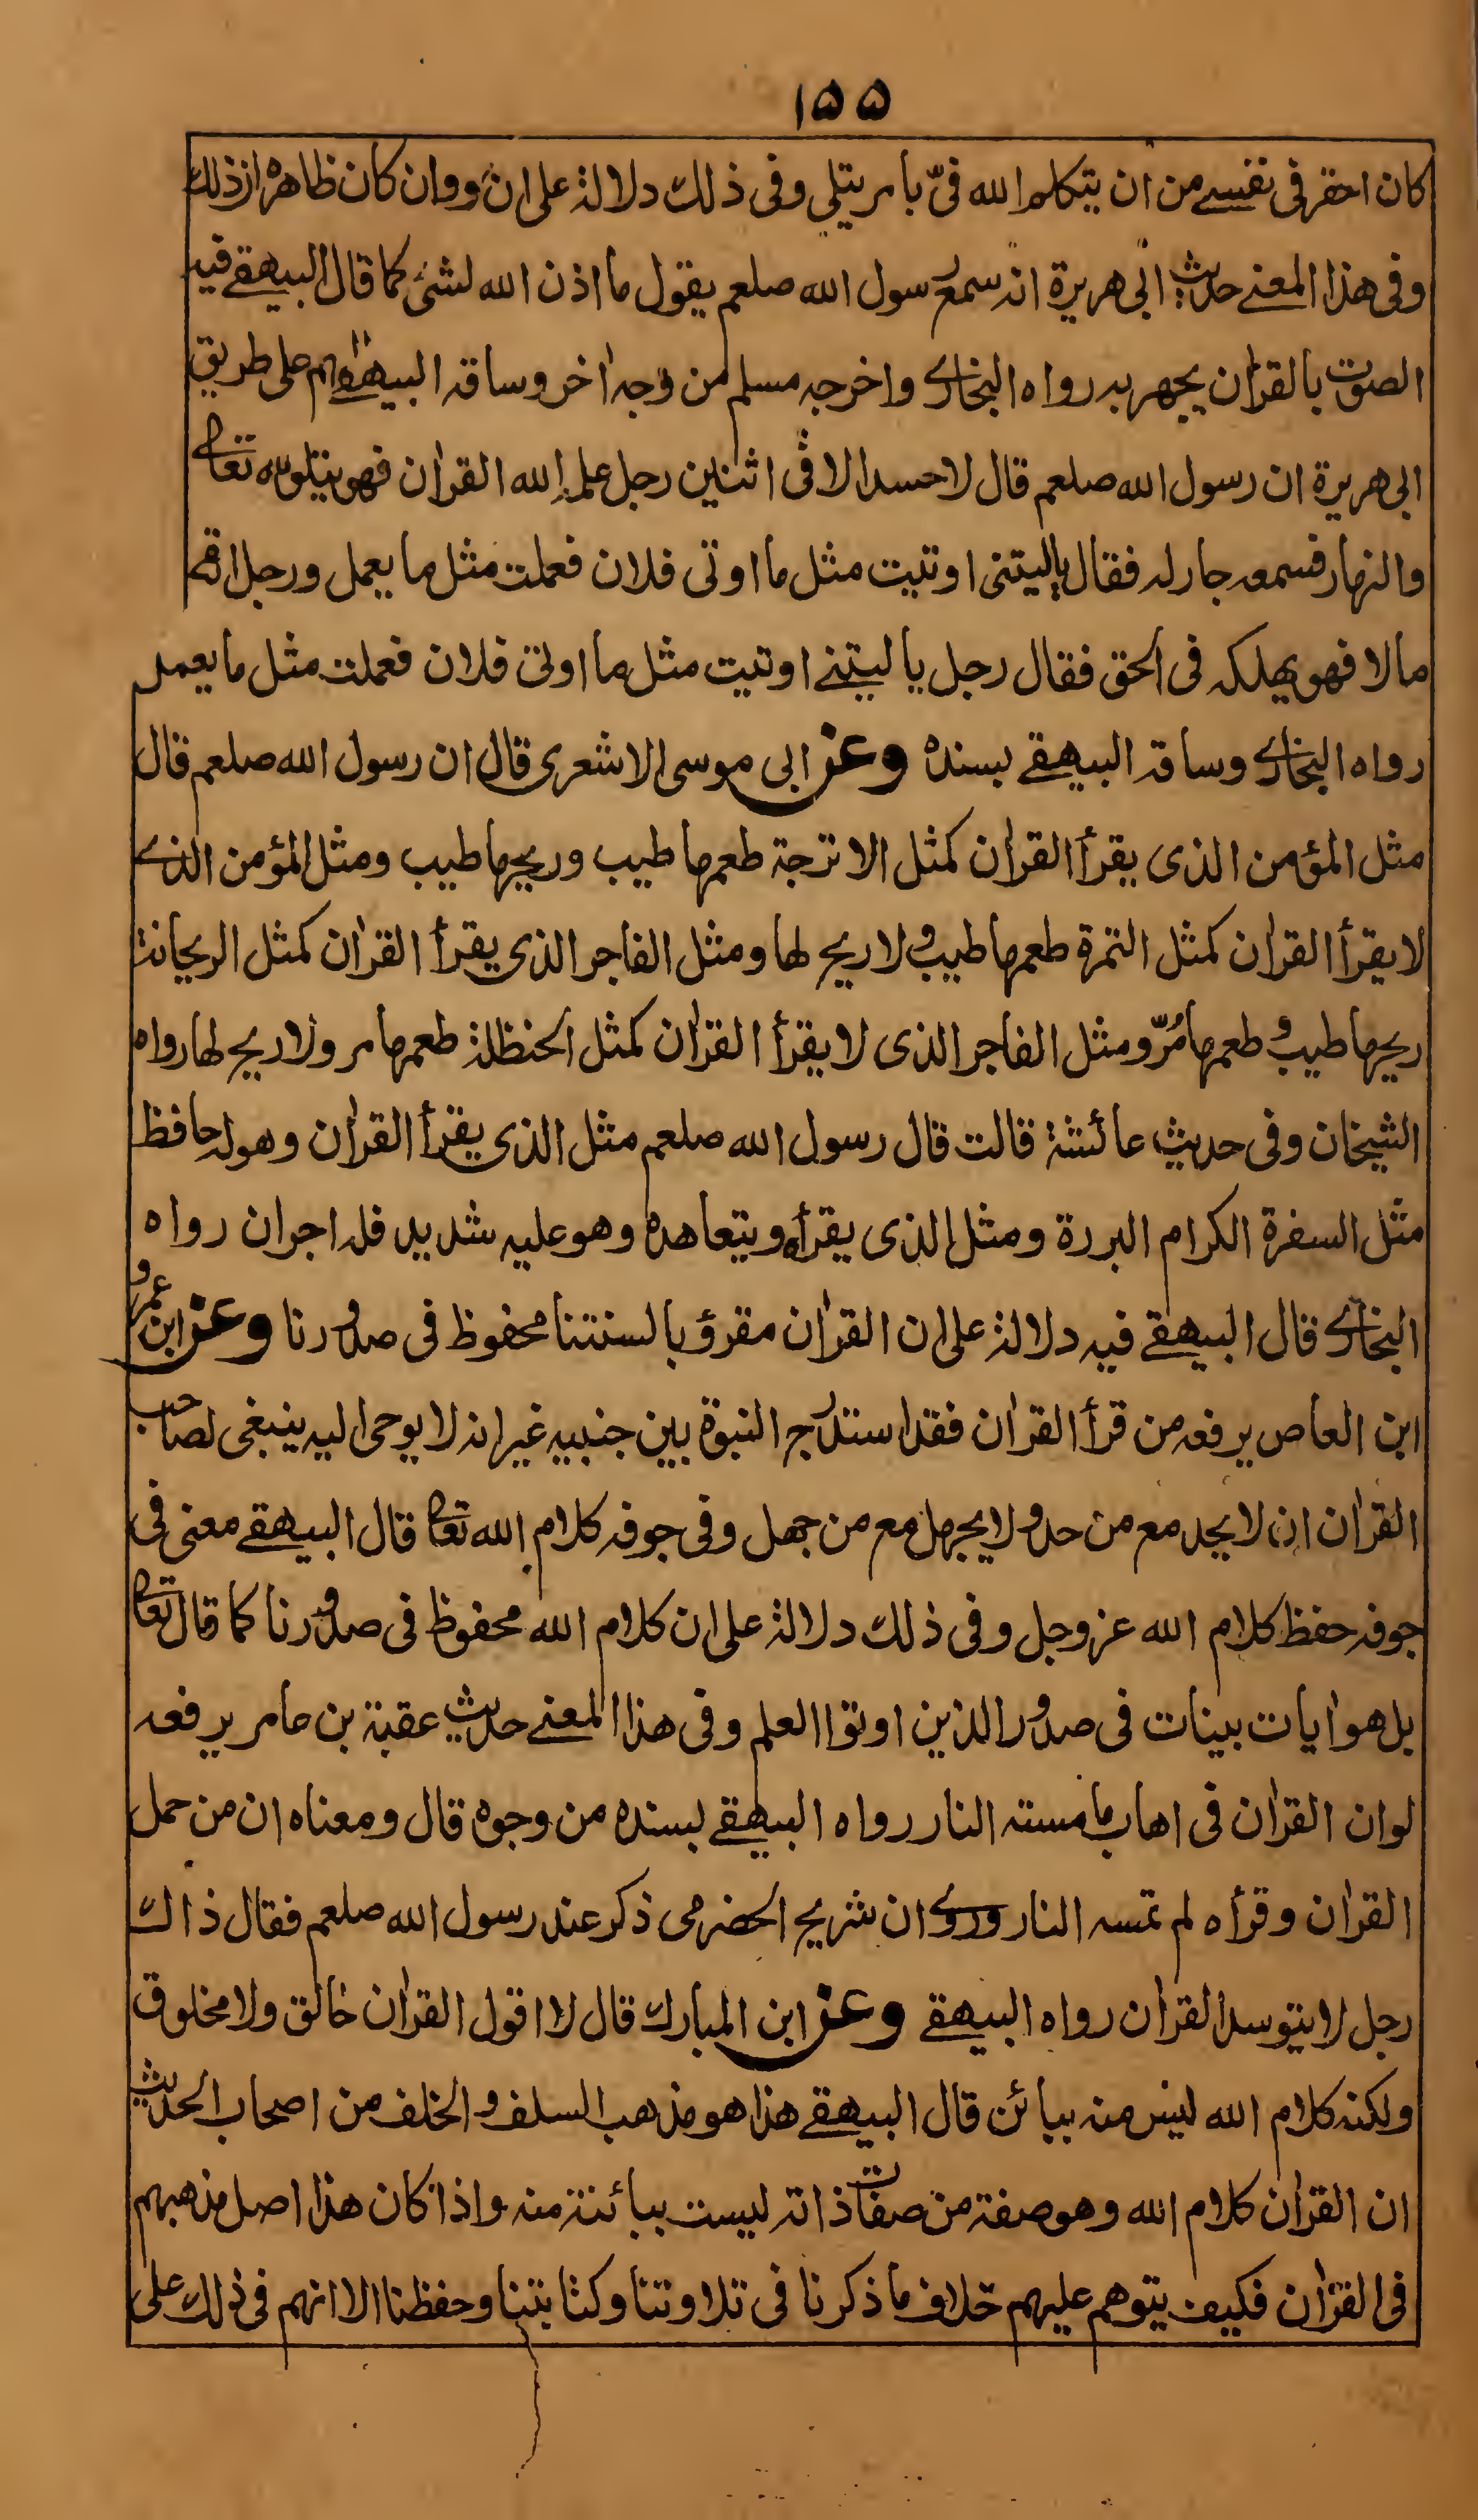 ١٥٥
كان احقر في نفسي من ان يتكلم الله فيّ بامر يتلى وفي ذلك دلالة على ان ووان كان ظاهره ان ذلك
وفي هذا المعنے حديث ابى هريرة انه سمع رسول الله صلعم يقول ما اذن الله لشئ كما قال البيهقے فيه
الصوت بالقران يجهر به رواه البخارے واخرجه مسلم من وجه اخر وساقه البيهقے على طريق
ابى هريرة ان رسول الله صلعم قال لا حسد الا في اثنين رجل علمه الله القران فهو يتلوه تعالى
والنهار فسمعه جار له فقال ياليتنى اوتيت مثل ما اوتى فلان فعملت مثل ما يعمل ورجل اتاه
مالا فهو يهلكه فى الحق فقال رجل ياليتنے اوتيت مثل ما اوتى فلان فعملت مثل ما يعمل
رواه البخارے وساقه البيهقے بسنده وعن ابى موسى الاشعرى قال ان رسول الله صلعم قال
مثل المؤمن الذى يقرأ القران كمثل الاترجة طعمها طيب وريحها طيب ومثل المؤمن الذے
لا يقرأ القران كمثل التمرة طعمها طيب ولا ريح لها ومثل الفاجر الذى يقرأ القران كمثل الريحانة
ريحها طيب وطعمها مُرّ ومثل الفاجر الذى لا يقرأ القران كمثل الحنظلة طعمها مر ولا ريح لها رواه
الشيخان وفى حديث عائشة قالت قال رسول الله صلعم مثل الذى يقرأ القران وهو له حافظ
مثل السفرة الكرام البررة ومثل الذى يقرأه ويتعاهده وهو عليه شديد فله اجران رواه
البخارے قال البيهقے فيه دلالة على ان القران مقرؤ بالسنتنا محفوظ فى صدورنا وعن ابن عمرو
ابن العاص يرفعه من قرأ القران فقد استدرج النبوة بين جنبيه غير انه لا يوحى اليه ينبغى لصاحب
القران ان لا يحد مع من حد ولا يجهل مع من جهل وفى جوفه كلام الله تعالى قال البيهقے معنى فى
جوفه حفظ كلام الله عز وجل وفى ذلك دلالة على ان كلام الله محفوظ فى صدورنا كما قال تعالى
بل هو ايات بينات فى صدور الذين اوتوا العلم وفى هذا المعنے حديث عقبة بن عامر يرفعه
لو ان القران فى اهاب ما مسته النار رواه البيهقے بسنده من وجوه قال ومعناه ان من حمل
القران وقرأه لم تمسه النار وروے ان شريح الحضرمى ذكر عند رسول الله صلعم فقال ذاك
رجل لا يتوسد القران رواه البيهقے وعن ابن المبارك قال لا اقول القران خالق ولا مخلوق
ولكنه كلام الله ليس منه ببائن قال البيهقے هذا هو مذهب السلف والخلف من اصحاب الحديث
ان القران كلام الله وهو صفة من صفات ذاته ليست ببائنة منه واذا كان هذا اصل مذهبهم
فى القران فكيف يتوهم عليهم خلاف ما ذكرنا فى تلاوتنا وكتابتنا وحفظنا الا انهم فى ذلك على